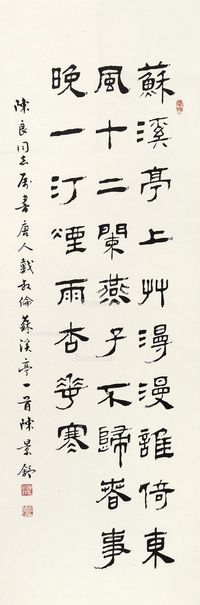 蘇溪亭上艸漫漫誰倚東
風十二闌燕子不歸春事
晚一汀煙雨杏華寒
陳良同志屬書唐人戴叔倫蘇溪亭一首陳景舒